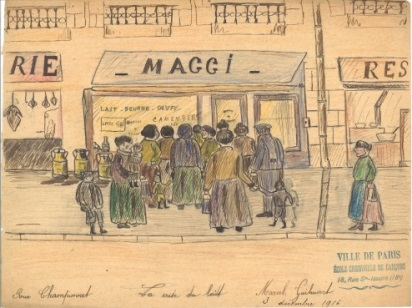 RIE
- MAGGI -
RES
LAIT - BEURRE - OEUFS
CAMEMBER
Rue Championnet
La
du lait
Marcel
décembre 1916
VILLE DE PARIS
ÉCOLE COMMUNALE DE GARÇONS